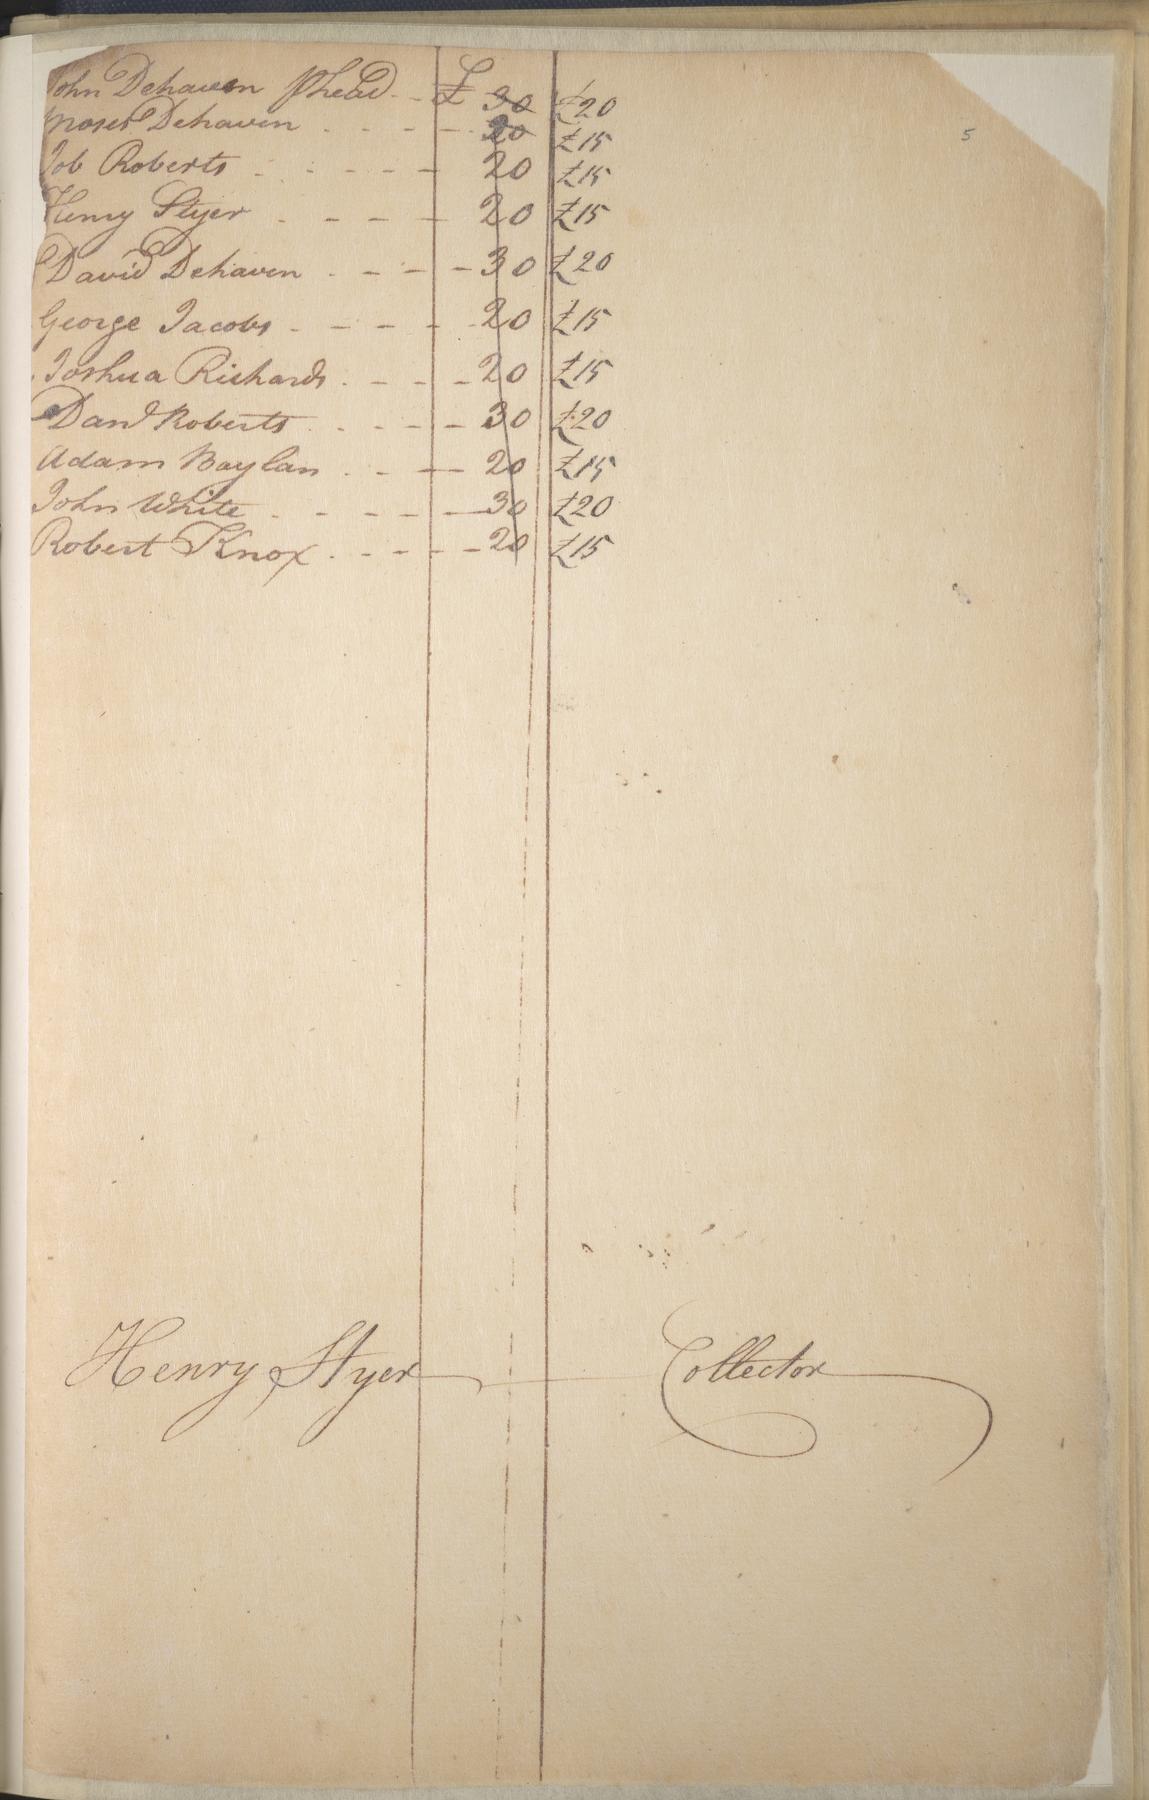 John Dehaven Phead £ 30 £20
5
Moses Dehaven 20 £15
Job Roberts 20 £15
Henry Styer 20 £15
David Dehaven 30 £20
George Jacobs 20 £15
Joshua Richards 20 £15
Danl Roberts 30 £20
Adam Baylan 20 £15
John White 30 £20
Robert Knox 20 £15
Henry Styer Collector